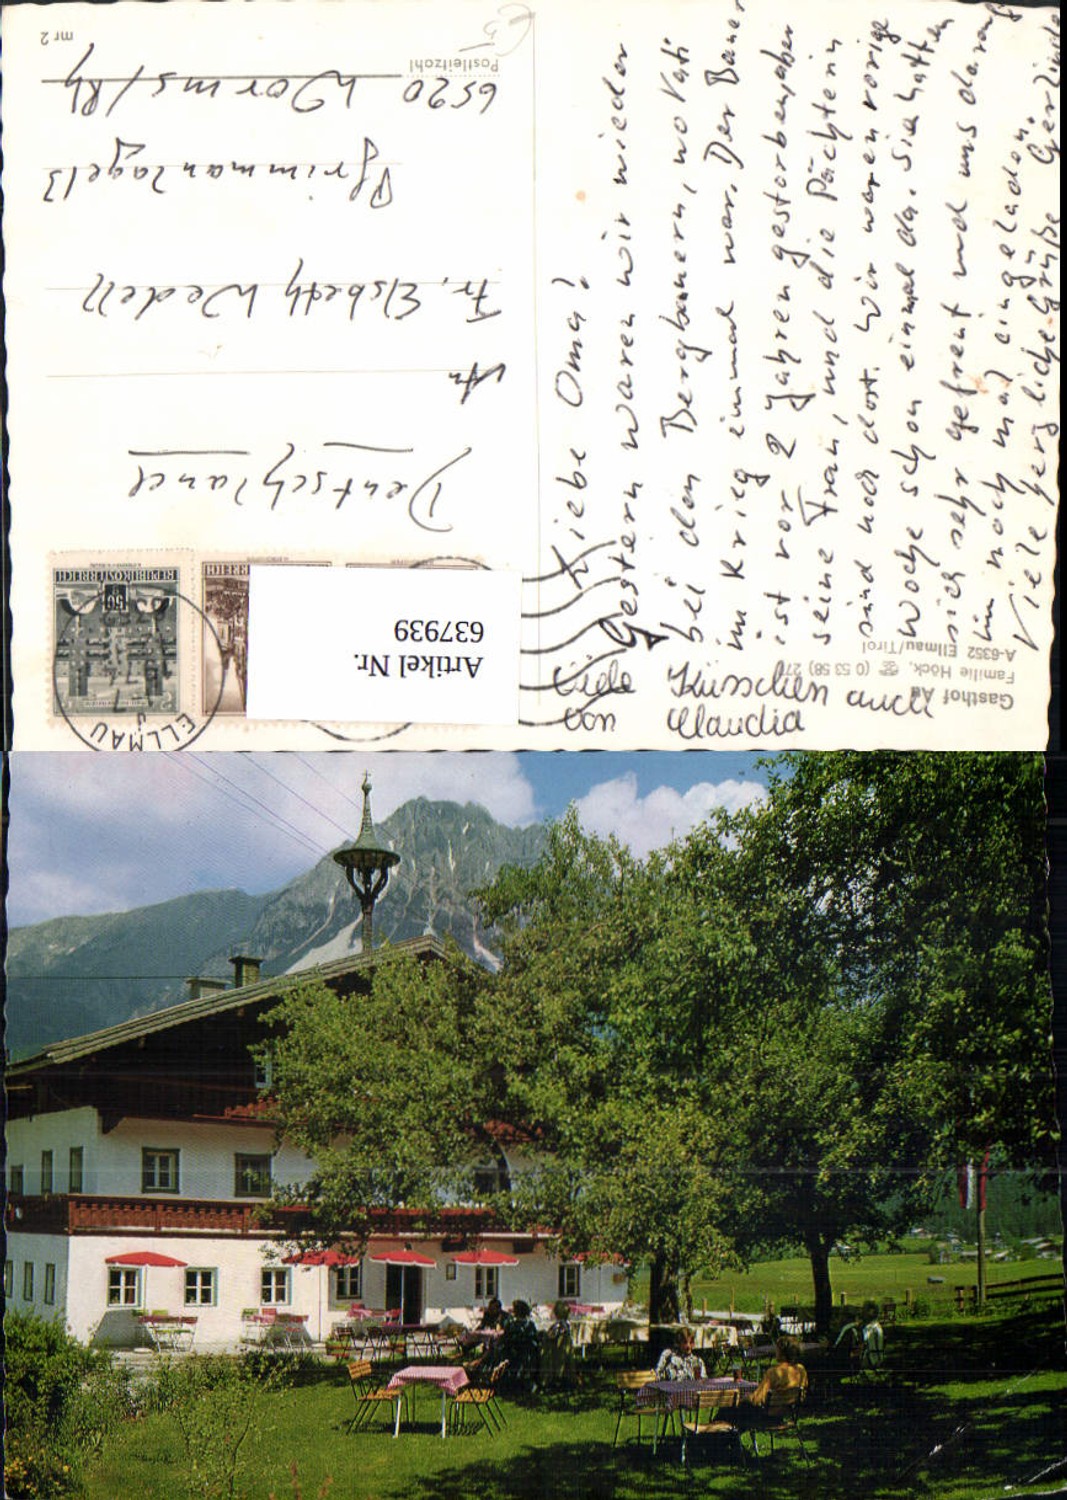 Liebe Oma!
Gestern waren wir wieder
bei den Bergbauern, wo Vati
im Krieg einmal war. Der Bauer
ist vor 2 Jahren gestorben, aber
seine Frau, und die Pächterin
sind noch dort. Wir waren vorige
Woche schon einmal da. Sie hatten
sich sehr gefreut und uns darauf
hin noch mal eingeladen.
Viele herzliche Grüße Gerlinde
Viele Küsschen auch
von Claudia
Gasthof Au
Familie Höck, ☎ (0 53 58) 277
A-6352 Ellmau/Tirol
Deutschland
An
Fr. Elsbeth Wedell
Pfrimmanlage 13
6520 Worms/Rh
Postleitzahl
mr 2
Artikel Nr.
637939
REPUBLIK ÖSTERREICH
50
ELLMAU